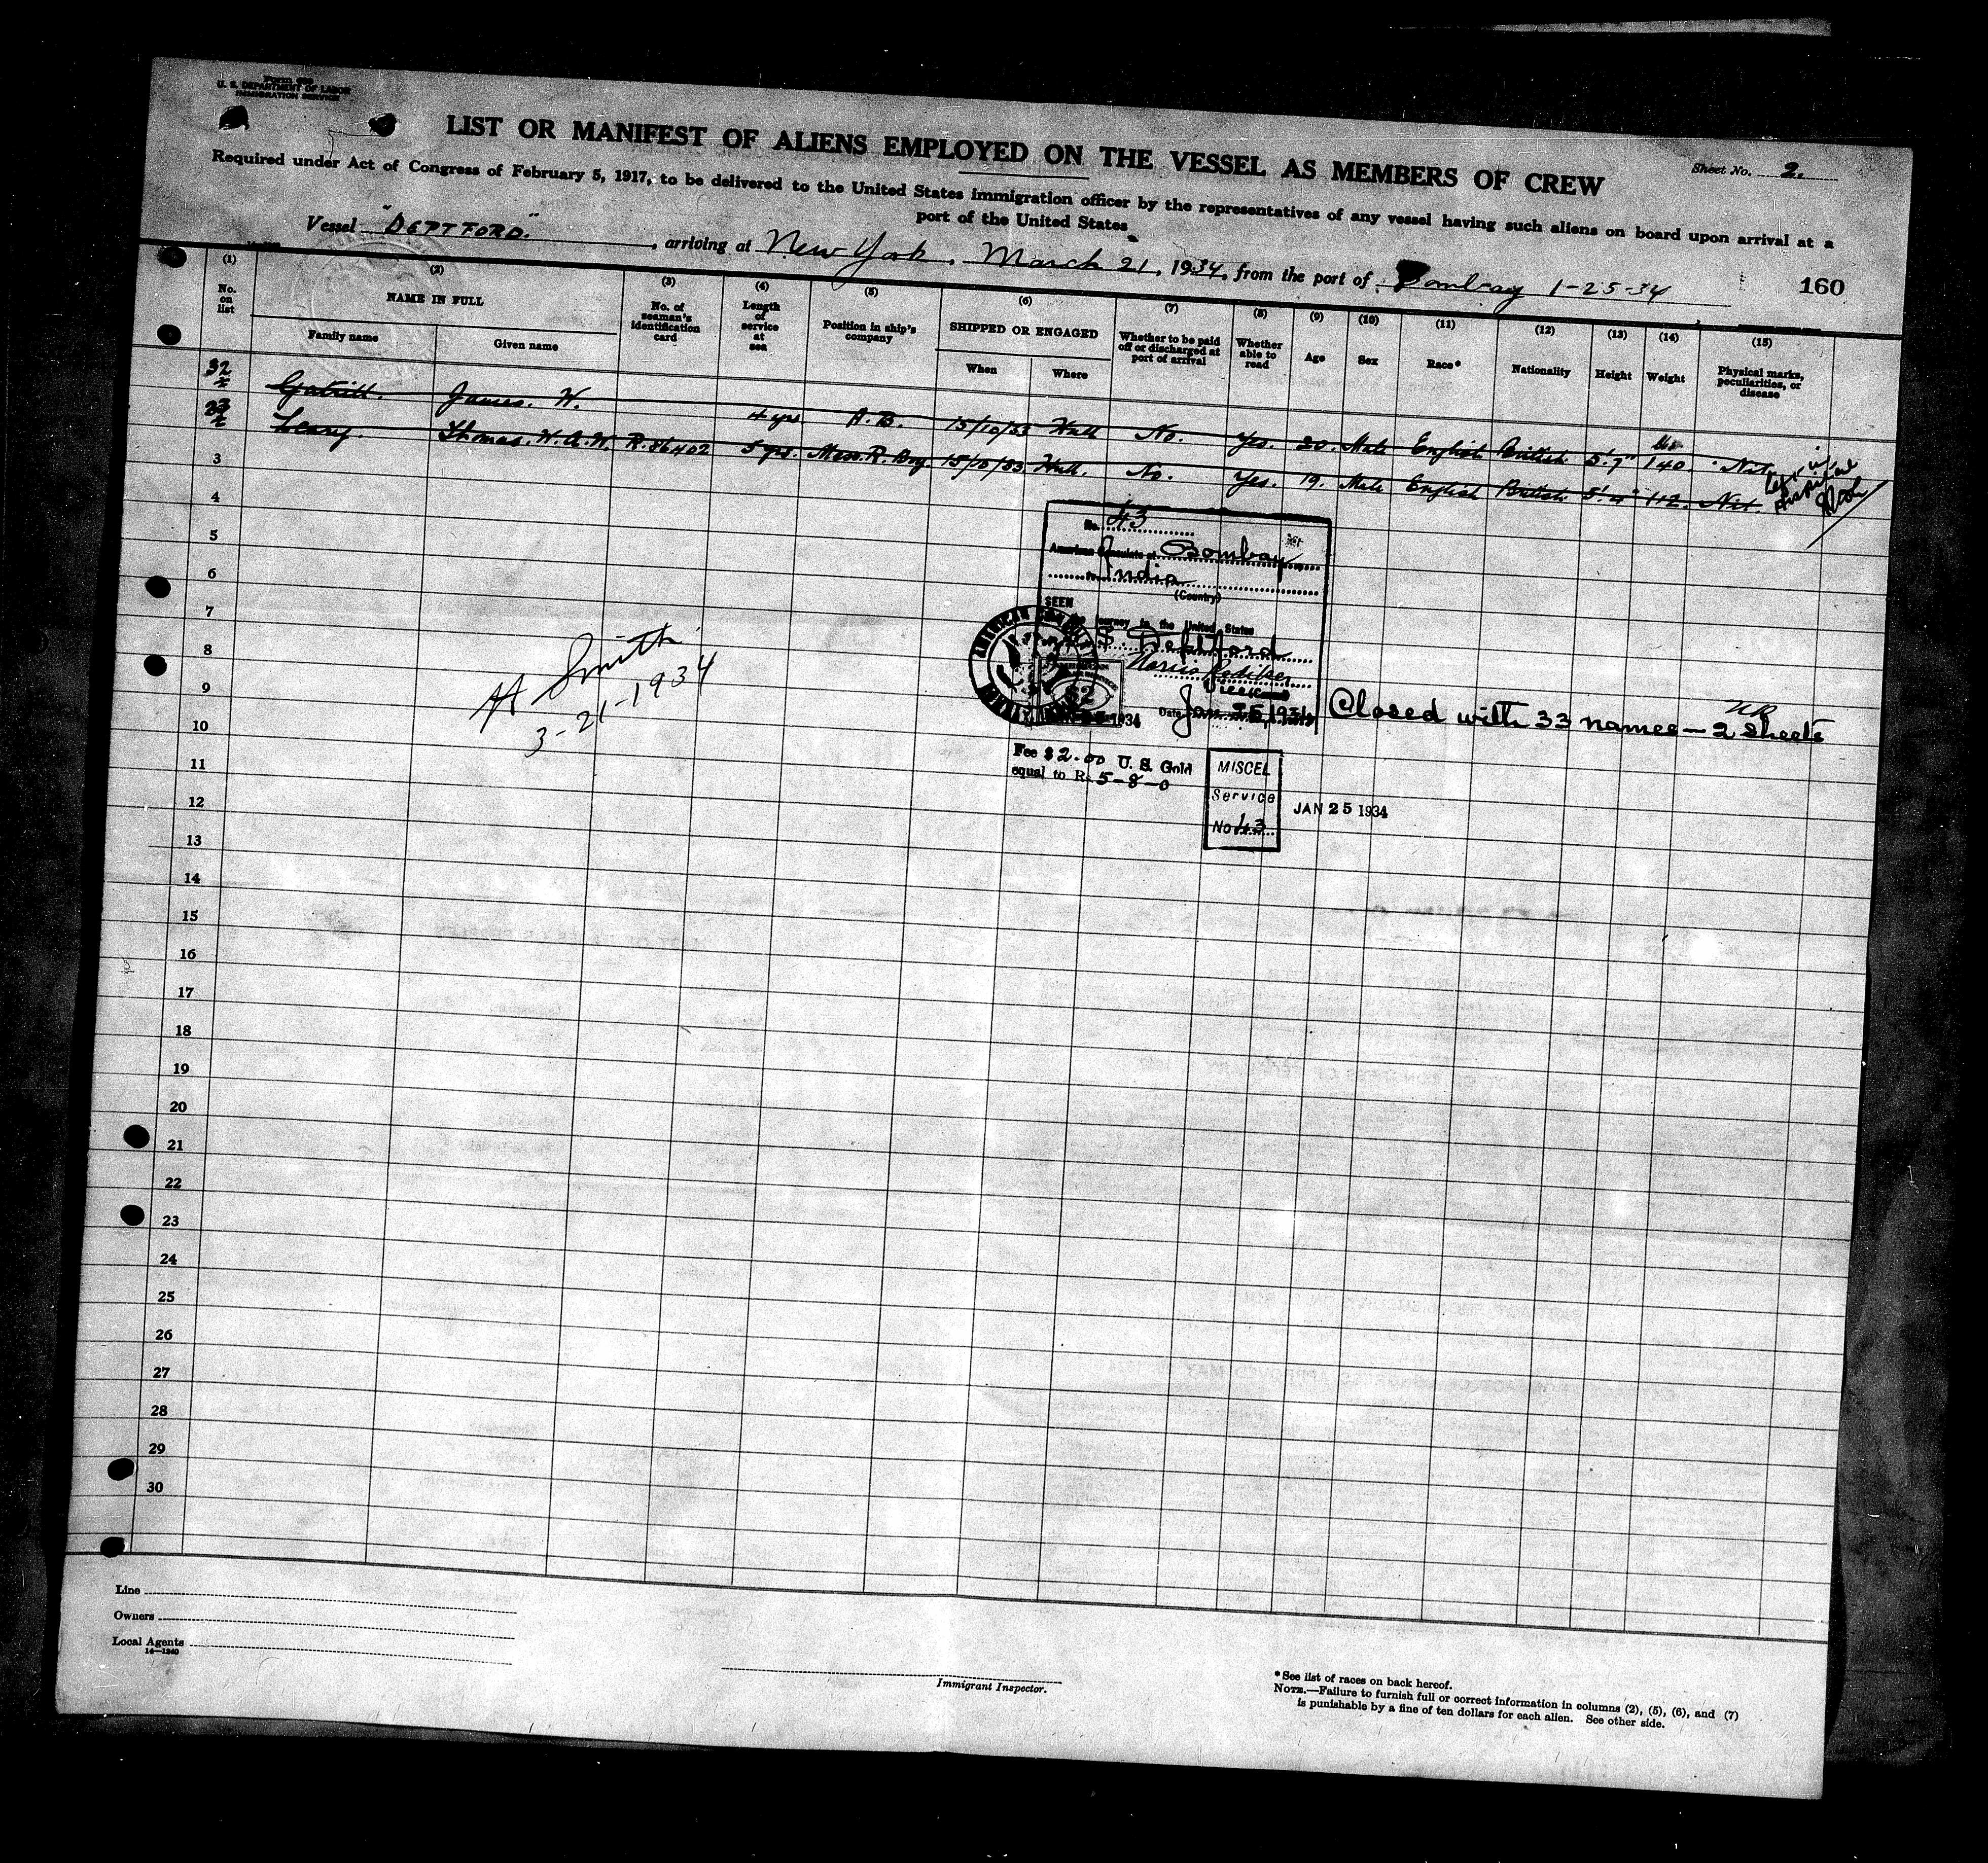 Form 680
U. S. DEPARTMENT OF LABOR
IMMIGRATION SERVICE
LIST OR MANIFEST OF ALIENS EMPLOYED ON THE VESSEL AS MEMBERS OF CREW
Sheet No. 2.
Required under Act of Congress of February 5, 1917, to be delivered to the United States immigration officer by the representatives of any vessel having such aliens on board upon arrival at a
port of the United States
Vessel "DEPTFORD.", arriving at New York, March 21, 1934, from the port of Bombay 1-25-34
160
(1) (2) (3) (4) (5) (6) (7) (8) (9) (10) (11) (12) (13) (14) (15)
No. on list
NAME IN FULL
Family name
Given name
No. of seaman's identification card
Length of service at sea
Position in ship's company
SHIPPED OR ENGAGED
When
Where
Whether to be paid off or discharged at port of arrival
Whether able to read
Age
Sex
Race*
Nationality
Height
Weight
Physical marks, peculiarities, or disease
32 James. W. 4 yrs. A. B. 15/10/33 Hull No. Yes. 20. Male English British 5'.7" 140 Nil.
33 Leary. Thomas. W. A. W. R.86402 5 yrs. Mess. R. Boy. 15/10/33 Hull. No. Yes. 19. Male English British 5'.4" 112. Nil.
3
4
5
6
7
8
9
10
11
12
13
14
15
16
17
18
19
20
21
22
23
24
25
26
27
28
29
30
No. 43
American Consulate at Bombay
India
(Country)
SEEN
journey to the United States
S. Deptford
Date Jan 25, 1934
$2
Closed with 33 names — 2 sheets
H Smith
3-21-1934
Fee $2.00 U. S. Gold
equal to Rs 5-8-0
MISCEL
Service
No 43
JAN 25 1934
Line
Owners
Local Agents
14—1240
Immigrant Inspector.
*See list of races on back hereof.
NOTE.—Failure to furnish full or correct information in columns (2), (5), (6), and (7)
is punishable by a fine of ten dollars for each alien. See other side.